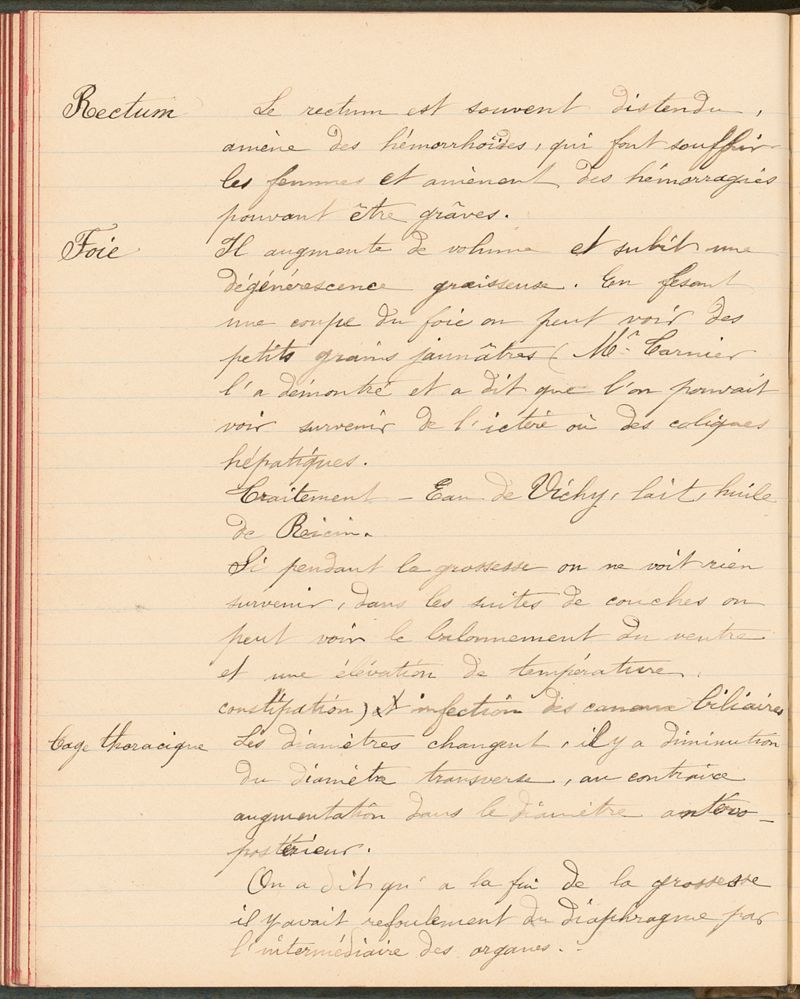 Rectum Le rectum est souvent distendu,
amène des hémorrhoïdes, qui font souffrir
les femmes et amènent des hémorragies
pouvant être grâves.
Foie Il augmente de volume et subit une
dégénérescence graisseuse. En fesant
une coupe du foie on peut voir des
petits grains jaunâtres (Mr. Tarnier
l'a démontré et a dit que l'on pouvait
voir survenir de l'ictère où des coliques
hépatiques.
Traitement - Eau de Vichy, lait, huile
de Ricin.
Si pendant la grossesse on ne voit rien
survenir, dans les suites de couches on
peut voir le balonnement du ventre
et une élévation de température,
constipation) et infection des canaux biliaires
Cage thoracique Les diamètres changent, il y a diminution
du diamètre transverse, au contraire
augmentation dans le diamètre antéro-
postérieur.
On a dit qu' a la fin de la grossesse
il y avait refoulement du diaphragme par
l'intermédiaire des organes.